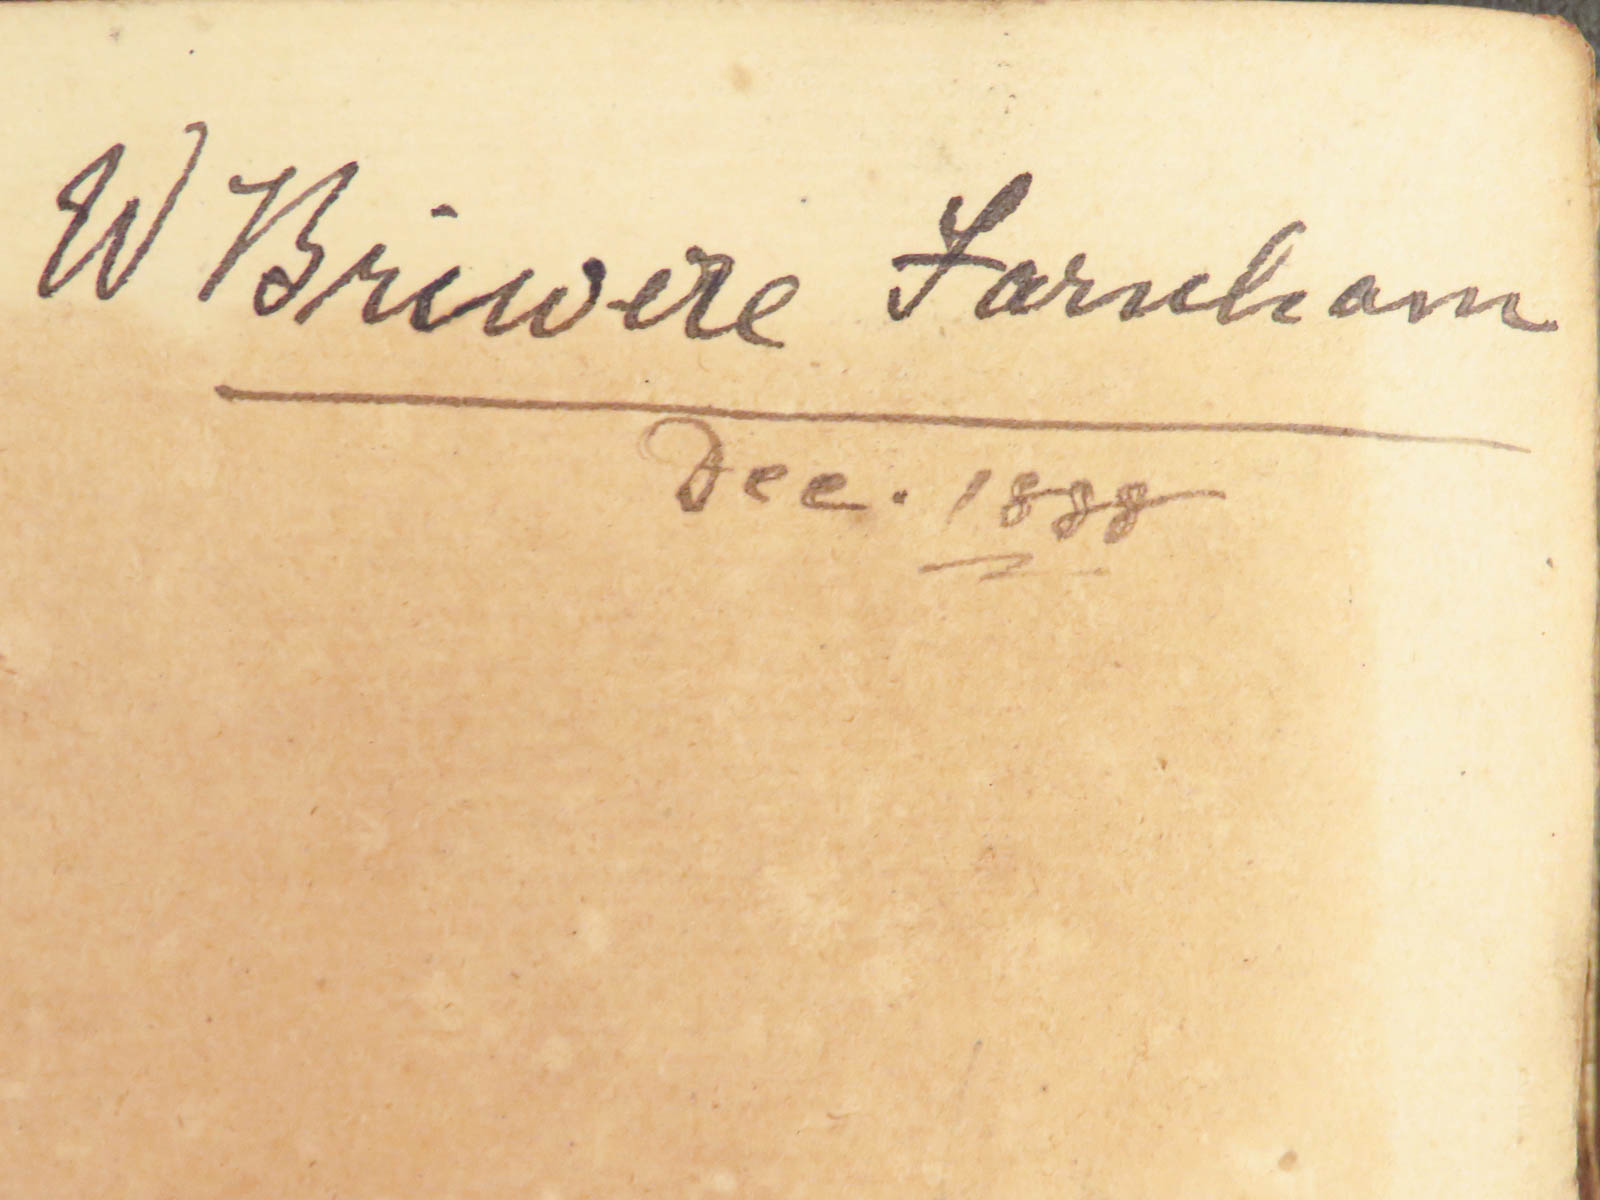 W Briwere Farnham
Dec. 1888